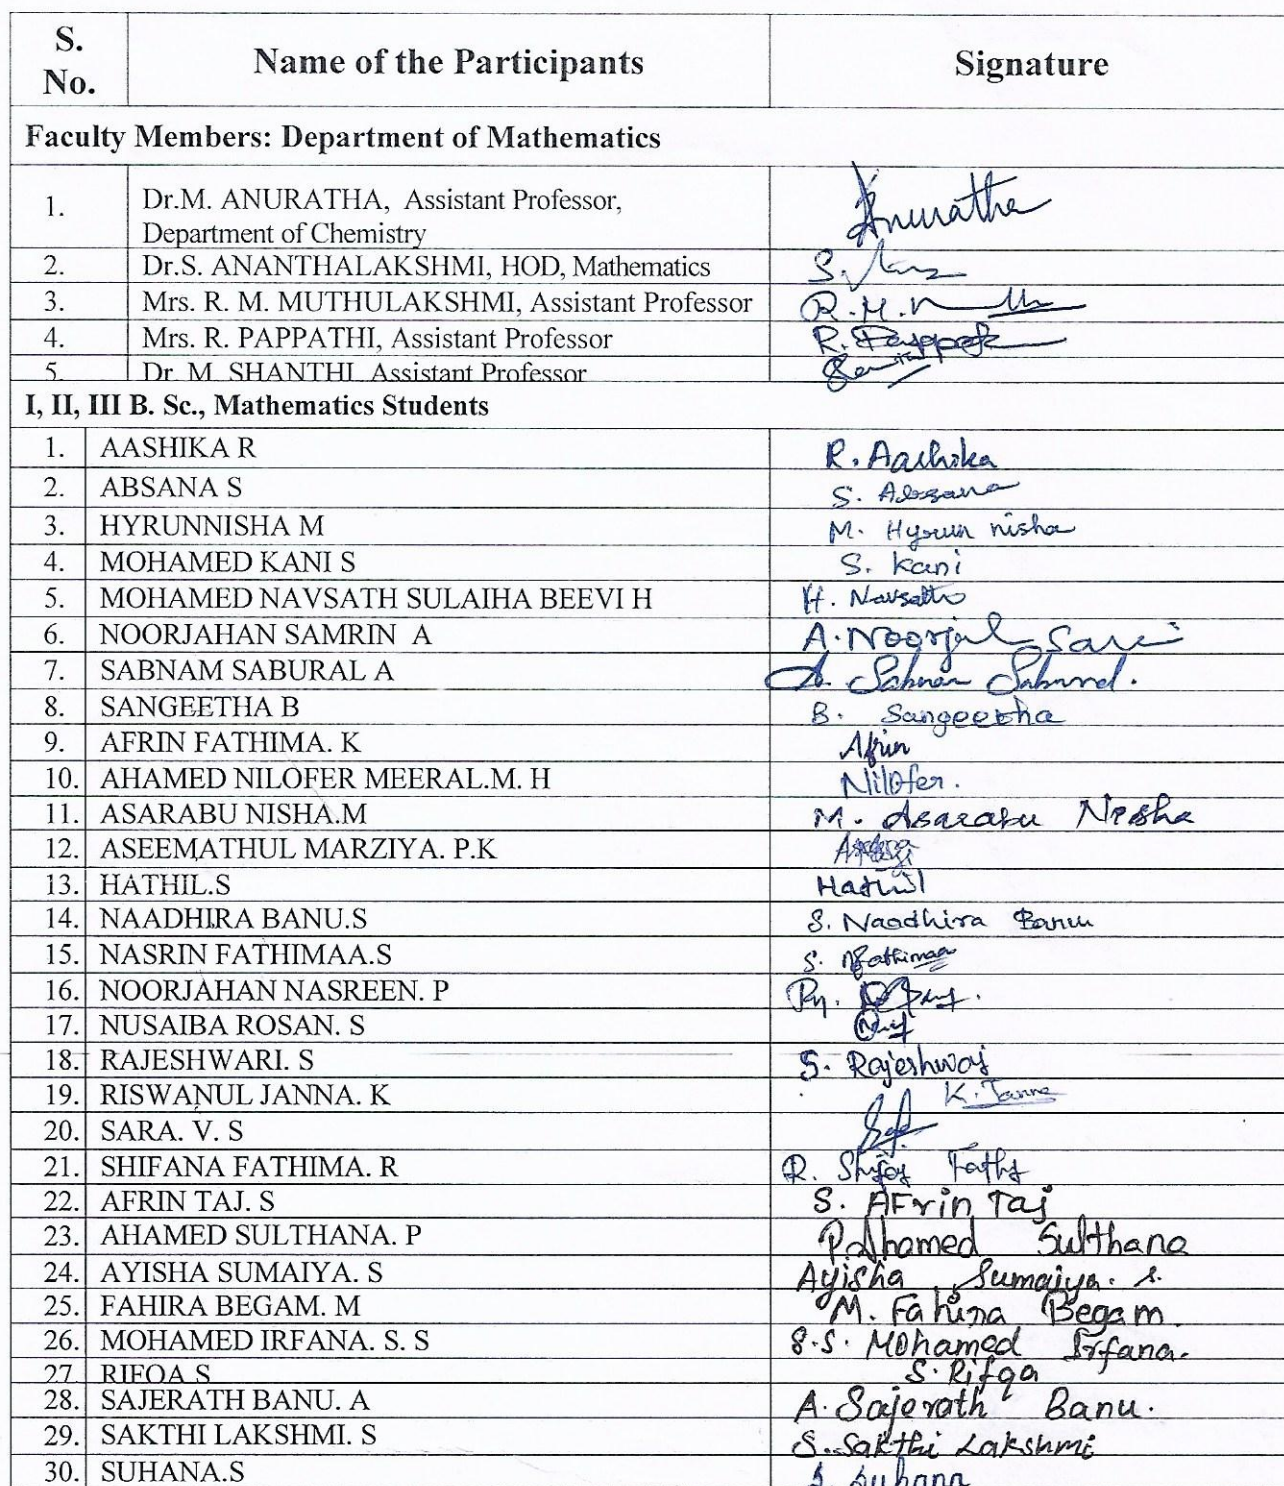 S. No. Name of the Participants Signature
Faculty Members: Department of Mathematics
1. Dr.M. ANURATHA, Assistant Professor, Anuratha
Department of Chemistry
2. Dr.S. ANANTHALAKSHMI, HOD, Mathematics S.
3. Mrs. R. M. MUTHULAKSHMI, Assistant Professor R.M.
4. Mrs. R. PAPPATHI, Assistant Professor R.
5. Dr. M. SHANTHI, Assistant Professor
I, II, III B. Sc., Mathematics Students
1. AASHIKA R R. Aashika
2. ABSANA S S. Absana
3. HYRUNNISHA M M. Hyrun nisha
4. MOHAMED KANI S S. Kani
5. MOHAMED NAVSATH SULAIHA BEEVI H H. Navsath
6. NOORJAHAN SAMRIN A A.
7. SABNAM SABURAL A A. Sabnam Sabural.
8. SANGEETHA B B. Sangeetha
9. AFRIN FATHIMA. K Afrin
10. AHAMED NILOFER MEERAL.M. H Nilofer.
11. ASARABU NISHA.M M. Asarabu Nisha
12. ASEEMATHUL MARZIYA. P.K
13. HATHIL.S Hathil
14. NAADHIRA BANU.S S. Naadhira Banu
15. NASRIN FATHIMAA.S S. Nfathimaa
16. NOORJAHAN NASREEN. P
17. NUSAIBA ROSAN. S
18. RAJESHWARI. S S. Rajeshwari
19. RISWANUL JANNA. K K. Janna
20. SARA. V. S
21. SHIFANA FATHIMA. R R.
22. AFRIN TAJ. S S. AFrin Taj
23. AHAMED SULTHANA. P P. Ahamed Sulthana
24. AYISHA SUMAIYA. S Ayisha Sumaiya. S.
25. FAHIRA BEGAM. M M. Fahira Begam.
26. MOHAMED IRFANA. S. S S.S. Mohamed Irfana.
27. RIFQA S S. Rifqa
28. SAJERATH BANU. A A. Sajerath Banu.
29. SAKTHI LAKSHMI. S S. Sakthi Lakshmi
30. SUHANA.S S. Suhana